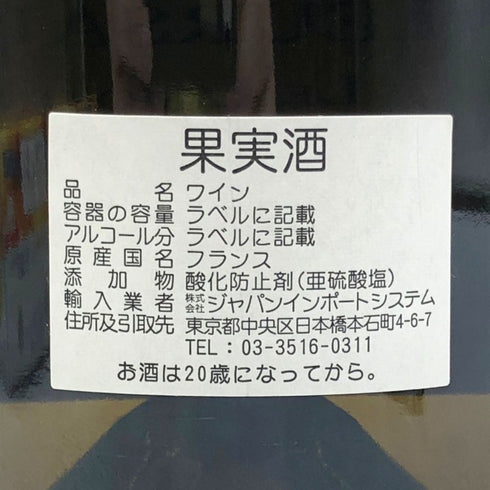 果実酒
品名 ワイン
容器の容量 ラベルに記載
アルコール分 ラベルに記載
原産国名 フランス
添加物 酸化防止剤(亜硫酸塩)
輸入業者 株式会社ジャパンインポートシステム
住所及引取先 東京都中央区日本橋本石町4-6-7
TEL:03-3516-0311
お酒は20歳になってから。